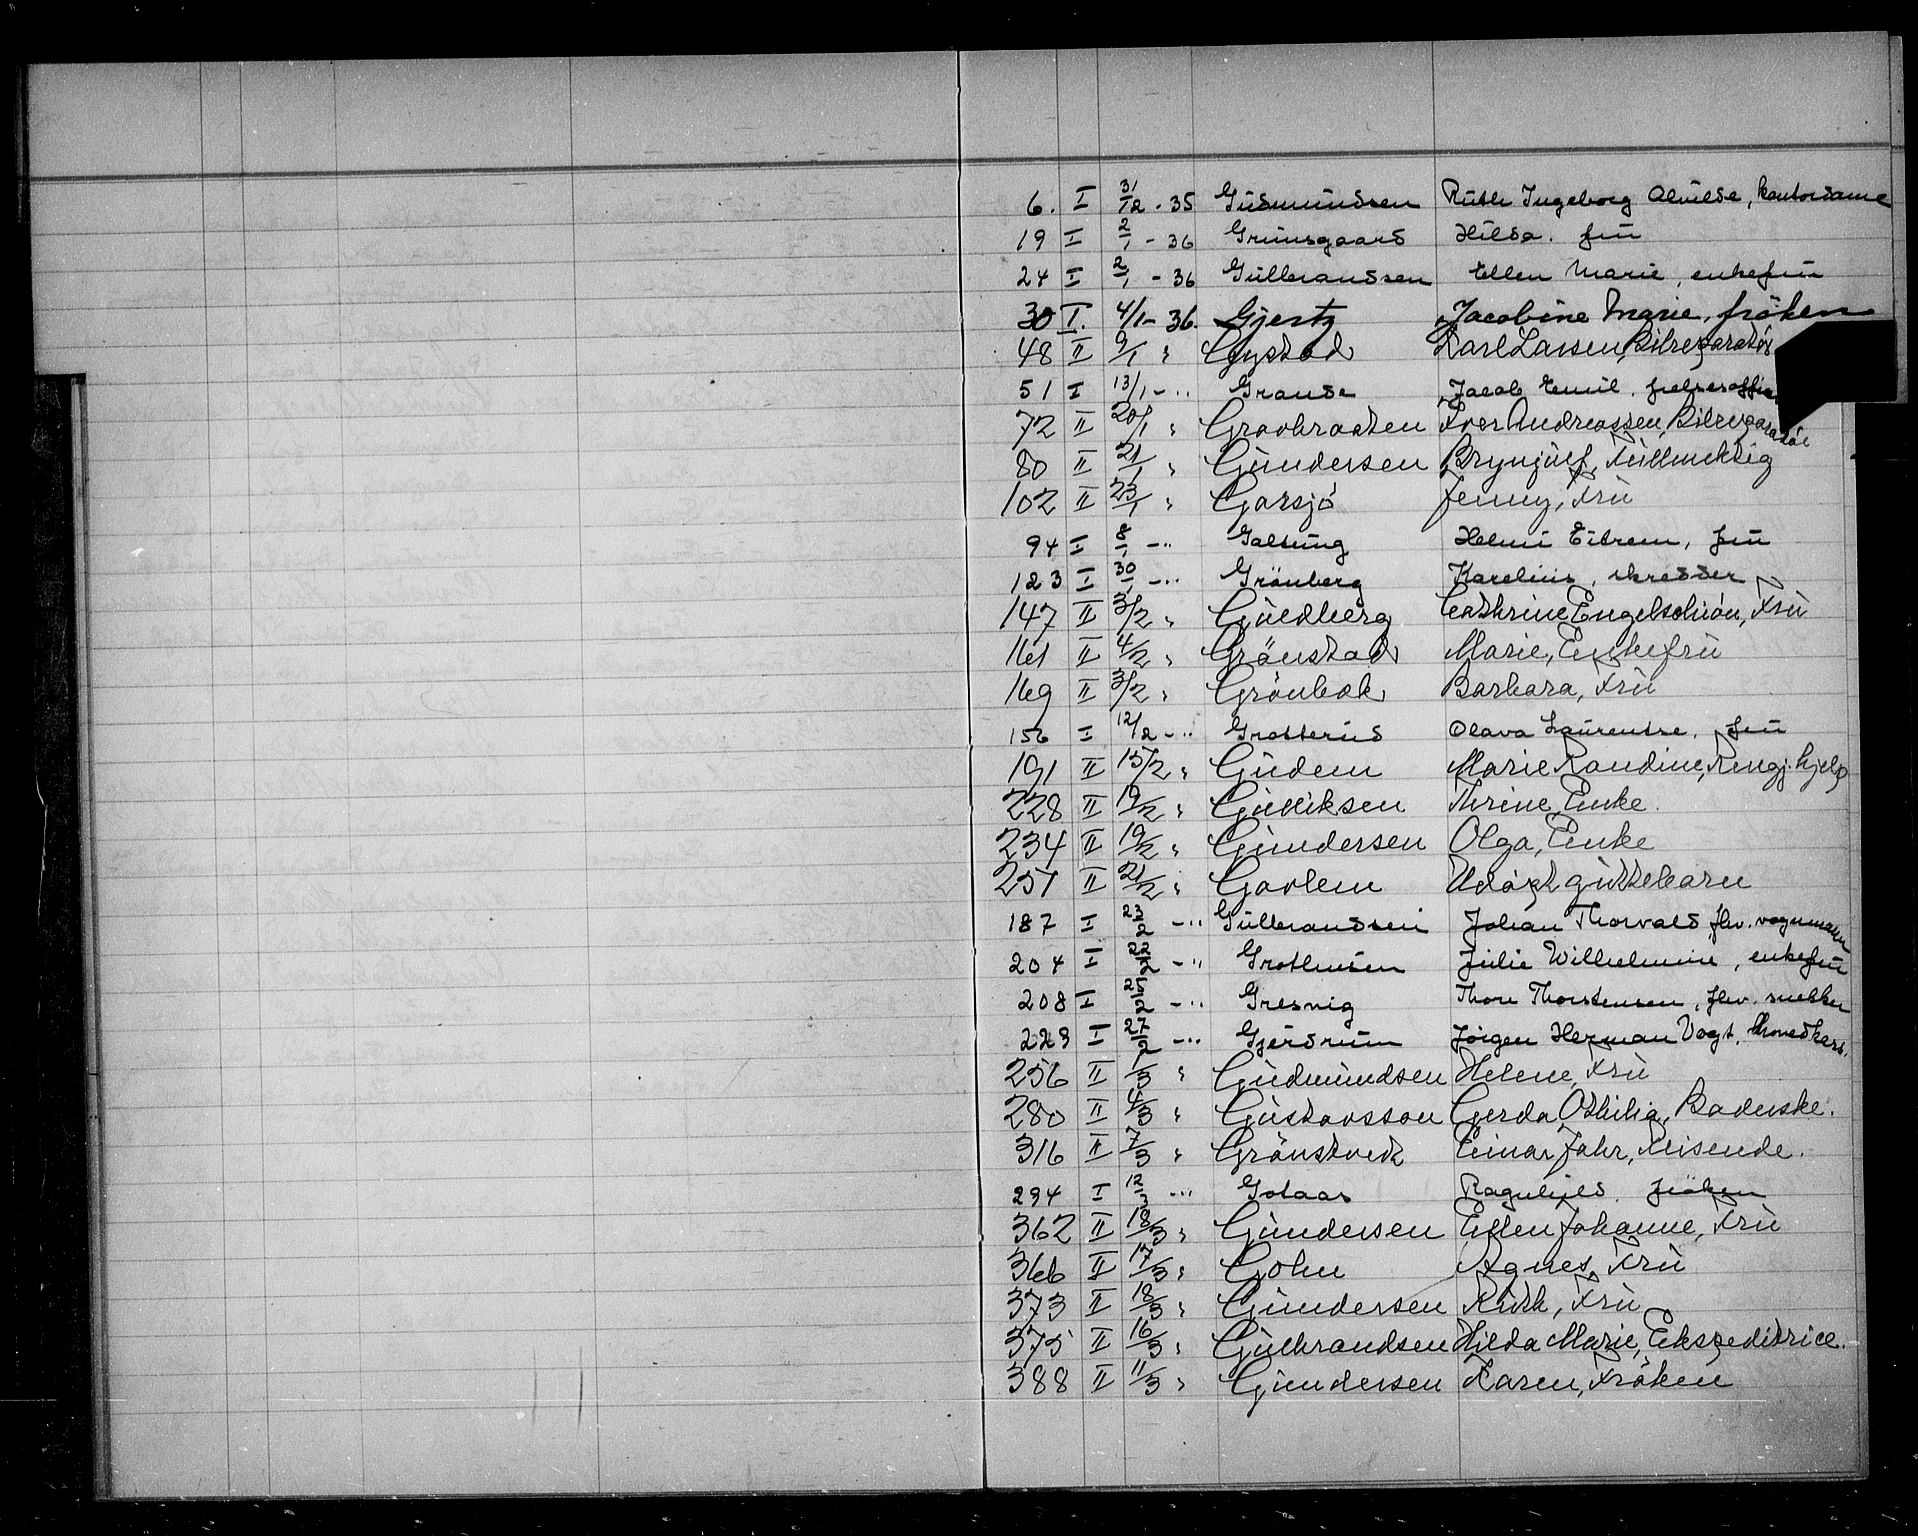 6. I 31/12 - 35 Gudmundsen Ruth Ingeborg Alvilde, kontordame
19 I 2/1 - 36 Hilda. fru
24 I 2/1 - 36 Gulbrandsen Ellen Marie, enkefru
30 I. 4/1 - 36. Gjertz Jacobine Marie, frøken
48 II 9/1 " Gystad Karl Larsen, Bilreparatör
51 I 13/1 - " Grande Jacob Emil.
72 II 20/1 " Gravbraaten Iver Andreassen, Bilreparatör
80 II 21/1 " Gundersen Brynjulf, Fullmektig
102 II 23/1 " Garsjö Jenny, Fru
94 I 8/1 - " Galtung Helmi Eitrem, fru
123 I 30/1 - " Grönberg Karelius, skredder
147 II 3/2 " Guldberg Cathrine Engelschiön, Fru
161 II 4/2 " Grönstad Marie, Enkefru
169 II 3/2 " Grönbek Barbara, Fru
156 I 12/2 - " Grotterud Olava Laurentse. fru
191 II 15/2 " Gudem Marie Randine, Rengj. hjelp
228 II 19/2 " Gulliksen Thrine, Enke.
234 II 19/2 " Gundersen Olga, Enke
251 II 21/2 " Garlem Udöpt guttebarn
187 I 23/2 - " Gulbrandsen Johan Thorvald, fhv. vognmann
204 I 22/2 - " Grothusen Julie Wilhelmine, enkefru
208 I 25/2 - " Gresvig Thore Thorstensen, fhv. snekker
223 I 27/2 - " Gjerdrum Jørgen Herman Vogt,
256 II 1/3 " Gudmundsen Helene, Fru
280 II 4/3 " Gustavsson Gerda Othilia, Baderske.
316 II 7/3 " Grönstvedt Einar Jahr, Reisende.
294 I 12/3 - " Gotaas Ragnhild. frøken
362 II 18/3 " Gundersen Ellen Johanne, Fru
366 II 17/3 " Gohn Agnes, Fru
373 II 18/3 " Gundersen Ruth, Fru
375 II 16/3 " Gulbrandsen Hilda Marie, Ekspeditrice.
388 II 11/3 " Gundersen Karen, Fröken